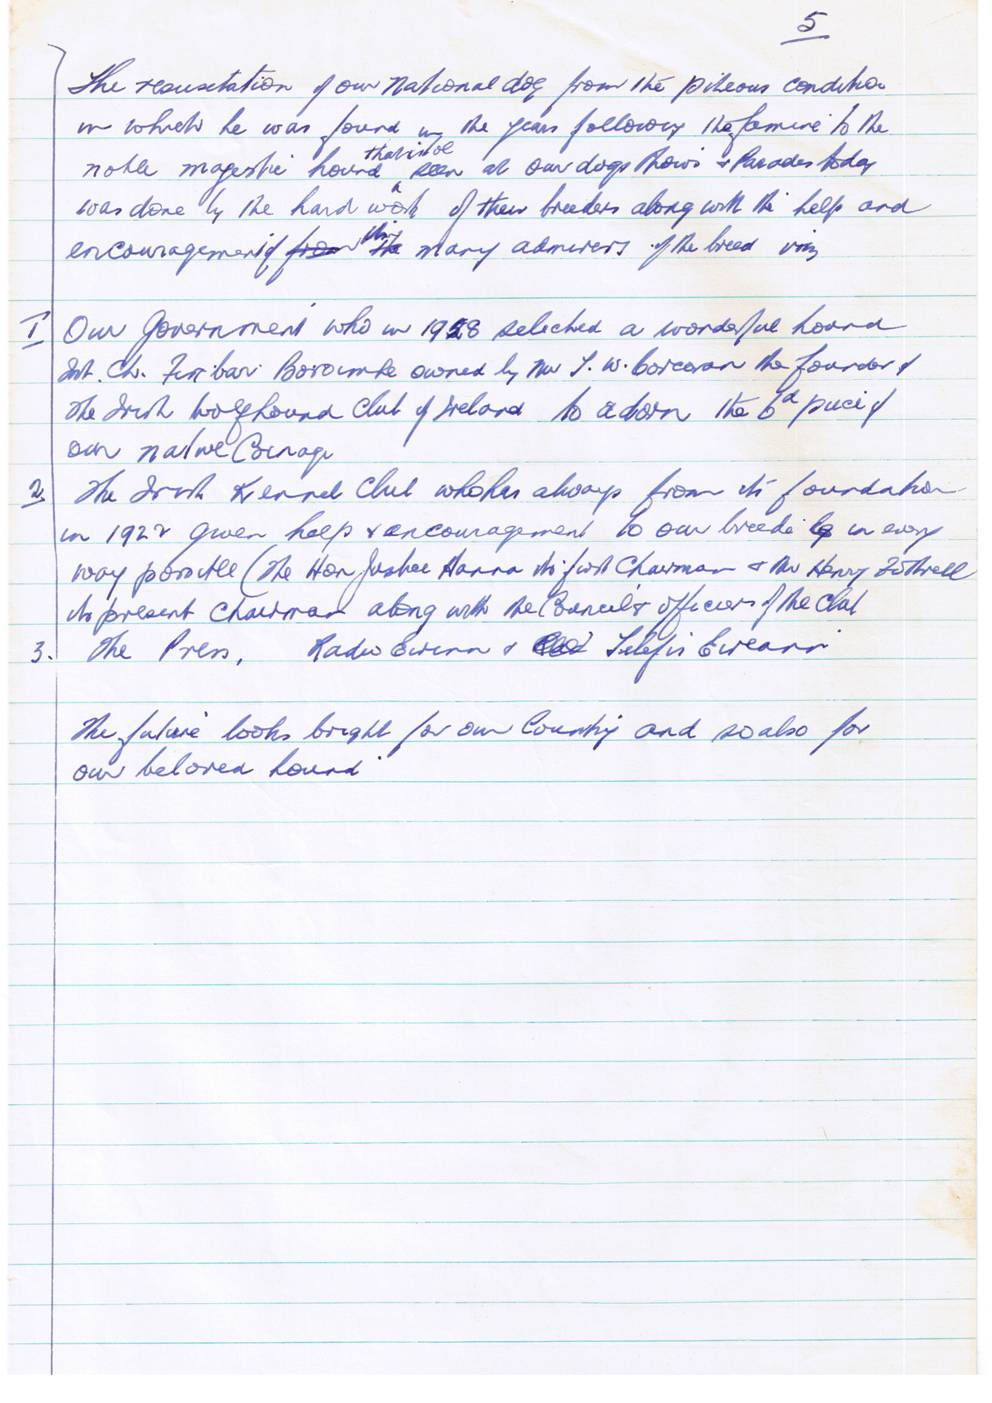 5
The resusetation of our National dog from the piteous condition
in which he was found in the years following the famine to the
noble magestic hound that is to be seen at our dogs Shows & Parades today
was done by the hard work of their breeders along with the help and
encouragement of from the many admirers of the breed viz
1 Our Government who in 1928 selected a wonderful hound
Int. Ch. Finbarr Boroimhe owned by Mr T. W. Corcoran the founder of
the Irish Wolfhound Club of Ireland to adorn the 6d piece of
our native Coinage
2 The Irish Kennel Club who has always from its foundation
in 1922 given help & encouragement to our breed in every
way possible (The Hon Justice Hanna its first Chairman & Mr Henry Fottrell
its present Chairman along with the Council & officers of the Club
3. The Press, Radio Eireann & Telefis Eireann
The future looks bright for our Country and so also for
our beloved hound